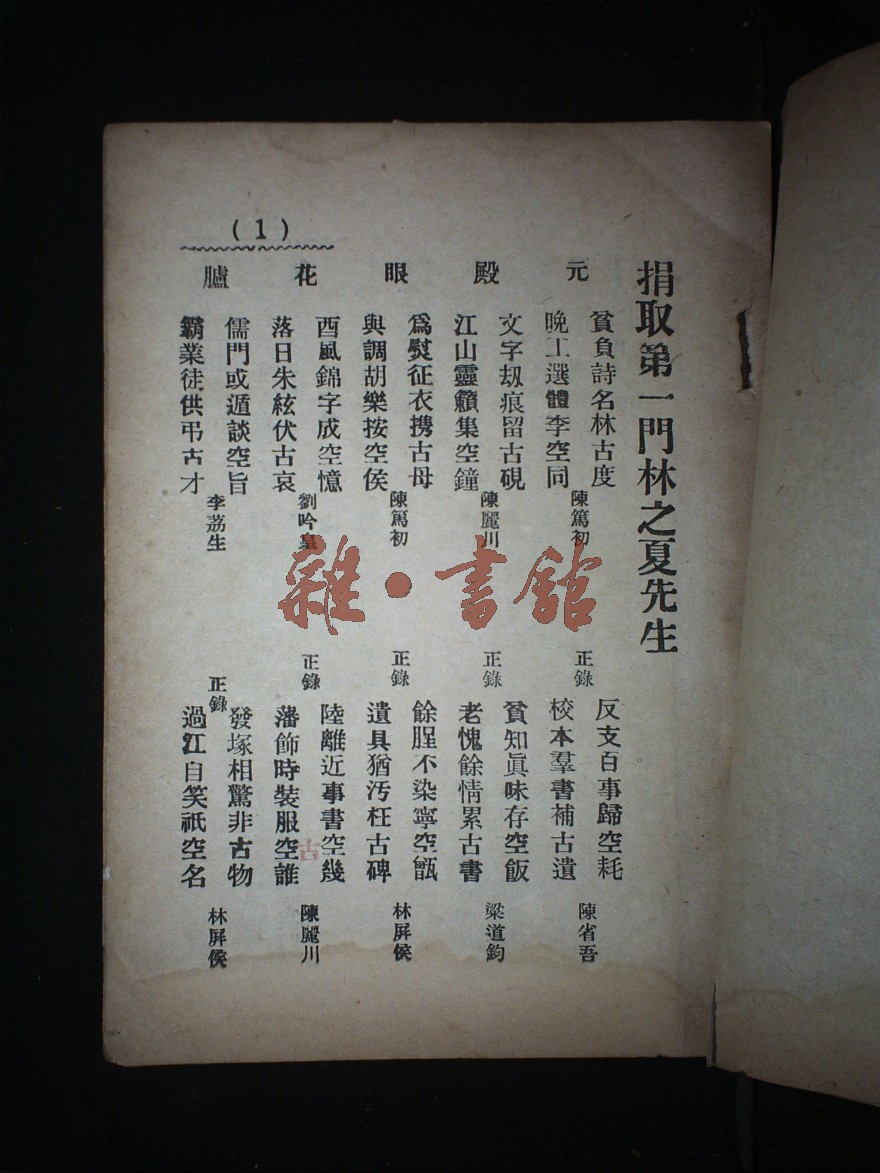 (1)
捐取第一門林之夏先生
元
貧負詩名林古度
晚工選體李空同
陳篤初
正錄
反支百事歸空耗
校本羣書補古遺
陳省吾
殿
文字刼痕留古硯
江山靈籟集空鐘
陳麗川
正錄
貧知眞味存空飯
老愧餘情累古書
梁道鈞
眼
爲熨征衣携古母
與調胡樂按空侯
陳篤初
正錄
餘腥不染寧空甑
遺具猶汚枉古碑
林屏侯
花
酉風錦字成空憶
落日朱絃伏古哀
劉吟皇
正錄
陸離近事書空幾
藩飾時裝服空誰
古
陳麗川
臚
儒門或遁談空旨
霸業徒供弔古才
李荔生
正錄
發塚相驚非古物
過江自笑祇空名
林屏侯
雜·書館